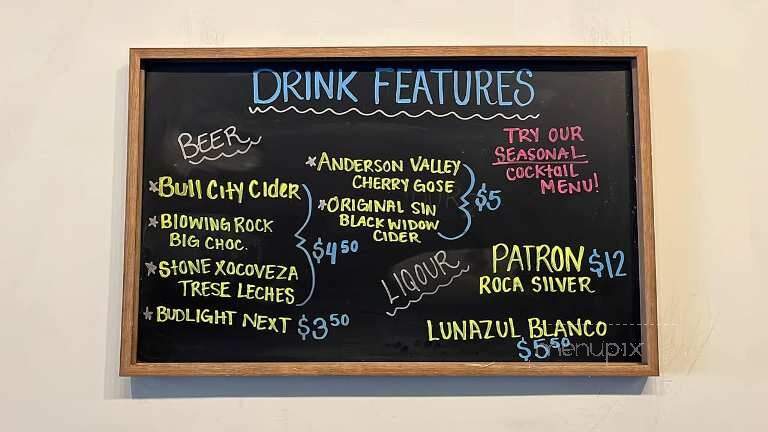 DRINK FEATURES
BEER
*BULL CITY CIDER
*BLOWING ROCK
BIG CHOC.
*STONE XOCOVEZA
TRESE LECHES
$4.50
*BUDLIGHT NEXT $3.50
*ANDERSON VALLEY
CHERRY GOSE
*ORIGINAL SIN
BLACK WIDOW
CIDER
$5
TRY OUR
SEASONAL
COCKTAIL
MENU!
LIQOUR
PATRON $12
ROCA SILVER
LUNAZUL BLANCO
$5.50
menupix